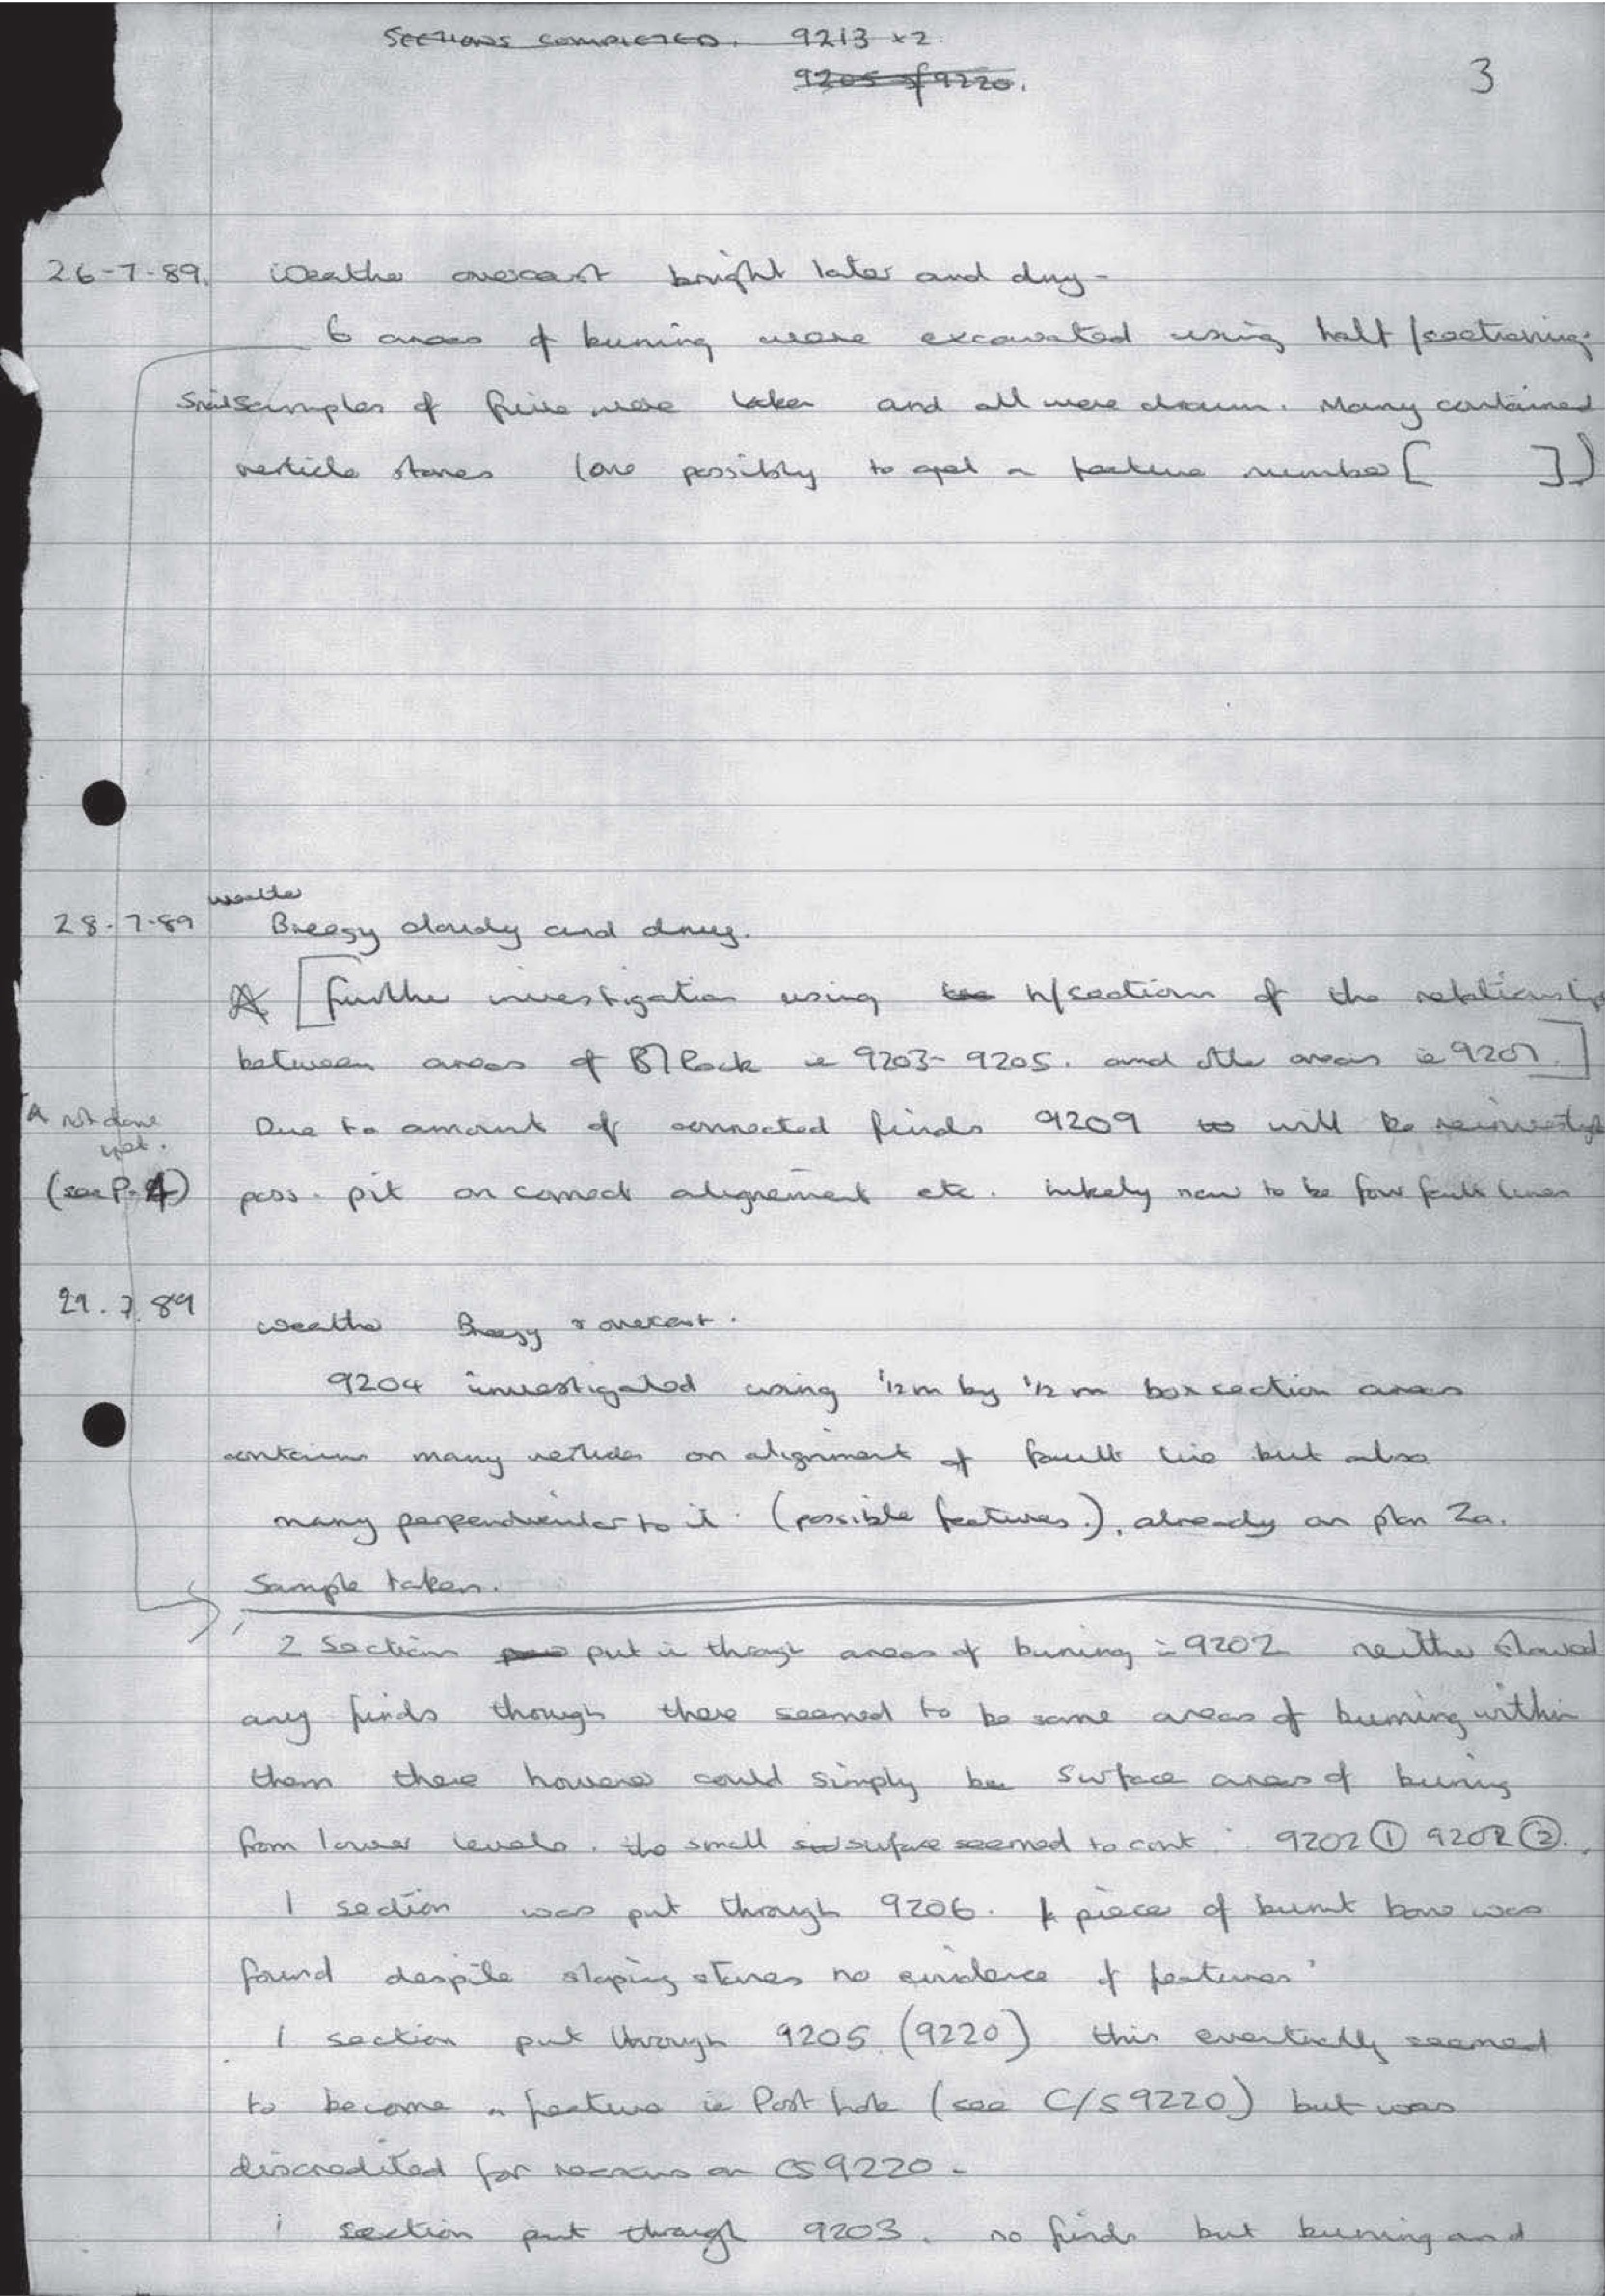 SECTIONS COMPLETED. 9213 x2.
9205 of 9220.
3
26-7-89. Weather overcast bright later and dry-
6 areas of burning were excavated using half/sectioning.
samples of five were taken and all were drawn. Many contained
verticle stones (are possibly to get a feature number [ ])
weather
28-7-89 Breezy cloudy and dry.
A [further investigation using h/section of the relationship
between areas of B/Rock ie 9203-9205. and other areas ie 9207.]
A not done
yet.
Due to amount of connected finds 9209 to will be
(see P.4) poss. pit on correct alignement etc. likely now to be four fault lines
29.7.89
Weather Breezy + overcast.
9204 investigated using 1/2m by 1/2m box section areas
contains many verticles on alignment of fault line but also
many perpendicular to it. (possible features.), already on plan 2a.
Sample taken.
2 Section put in through areas of burning in 9202 neither showed
any finds though there seemed to be some areas of burning within
them there however could simply be surface areas of burning
from lower levels. the small surface seemed to cont. 9202 ① 9202 ②.
1 section was put through 9206. A piece of burnt bone was
found despite sloping stones no evidence of features.
1 section put through 9205. (9220) this eventually seemed
to become a feature ie Post hole (see C/S 9220) but was
discredited for reasons on CS 9220-
1 section put through 9203. no finds but burning and